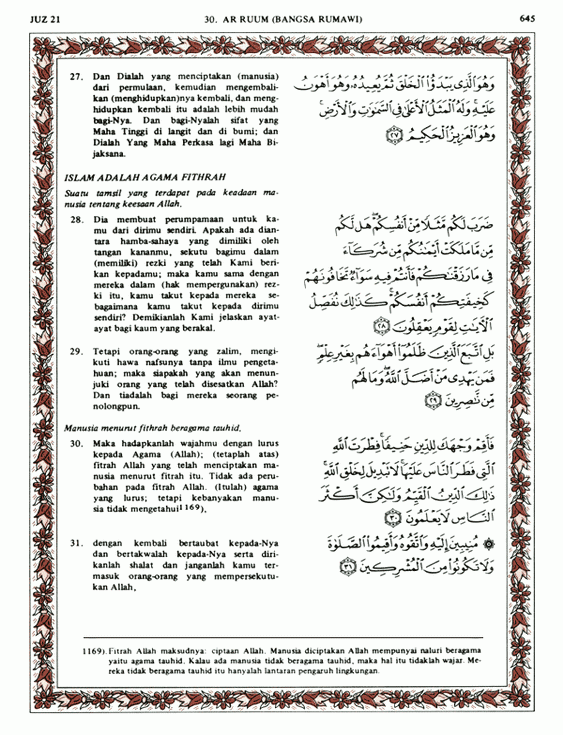 JUZ 21
30. AR RUUM (BANGSA RUMAWI)
645
27. Dan Dialah yang menciptakan (manusia)
dari permulaan, kemudian mengembali-
kan (menghidupkan)nya kembali, dan meng-
hidupkan kembali itu adalah lebih mudah
bagi-Nya. Dan bagi-Nyalah sifat yang
Maha Tinggi di langit dan di bumi; dan
Dialah Yang Maha Perkasa lagi Maha Bi-
jaksana.
وَهُوَ ٱلَّذِى يَبْدَؤُا۟ ٱلْخَلْقَ ثُمَّ يُعِيدُهُۥ وَهُوَ أَهْوَنُ
عَلَيْهِ ۚ وَلَهُ ٱلْمَثَلُ ٱلْأَعْلَىٰ فِى ٱلسَّمَٰوَٰتِ وَٱلْأَرْضِ ۚ
وَهُوَ ٱلْعَزِيزُ ٱلْحَكِيمُ ٢٧
ISLAM ADALAH AGAMA FITHRAH
Suatu tamsil yang terdapat pada keadaan ma-
nusia tentang keesaan Allah.
28. Dia membuat perumpamaan untuk ka-
mu dari dirimu sendiri. Apakah ada dian-
tara hamba-sahaya yang dimiliki oleh
tangan kananmu, sekutu bagimu dalam
(memiliki) rezki yang telah Kami beri-
kan kepadamu; maka kamu sama dengan
mereka dalam (hak mempergunakan) rez-
ki itu, kamu takut kepada mereka se-
bagaimana kamu takut kepada dirimu
sendiri? Demikianlah Kami jelaskan ayat-
ayat bagi kaum yang berakal.
ضَرَبَ لَكُم مَّثَلًا مِّنْ أَنفُسِكُمْ ۖ هَل لَّكُم
مِّن مَّا مَلَكَتْ أَيْمَٰنُكُم مِّن شُرَكَآءَ
فِى مَا رَزَقْنَٰكُمْ فَأَنتُمْ فِيهِ سَوَآءٌ تَخَافُونَهُمْ
كَخِيفَتِكُمْ أَنفُسَكُمْ ۚ كَذَٰلِكَ نُفَصِّلُ
ٱلْءَايَٰتِ لِقَوْمٍ يَعْقِلُونَ ٢٨
29. Tetapi orang-orang yang zalim, mengi-
kuti hawa nafsunya tanpa ilmu pengeta-
huan; maka siapakah yang akan menun-
juki orang yang telah disesatkan Allah?
Dan tiadalah bagi mereka seorang pe-
nolongpun.
بَلِ ٱتَّبَعَ ٱلَّذِينَ ظَلَمُوٓا۟ أَهْوَآءَهُم بِغَيْرِ عِلْمٍ ۖ
فَمَن يَهْدِى مَنْ أَضَلَّ ٱللَّهُ ۖ وَمَا لَهُم
مِّن نَّٰصِرِينَ ٢٩
Manusia menurut fithrah beragama tauhid.
30. Maka hadapkanlah wajahmu dengan lurus
kepada Agama (Allah); (tetaplah atas)
fitrah Allah yang telah menciptakan ma-
nusia menurut fitrah itu. Tidak ada peru-
bahan pada fitrah Allah. (Itulah) agama
yang lurus; tetapi kebanyakan manu-
sia tidak mengetahui1169),
فَأَقِمْ وَجْهَكَ لِلدِّينِ حَنِيفًا ۚ فِطْرَتَ ٱللَّهِ
ٱلَّتِى فَطَرَ ٱلنَّاسَ عَلَيْهَا ۚ لَا تَبْدِيلَ لِخَلْقِ ٱللَّهِ ۚ
ذَٰلِكَ ٱلدِّينُ ٱلْقَيِّمُ وَلَٰكِنَّ أَكْثَرَ
ٱلنَّاسِ لَا يَعْلَمُونَ ٣٠
31. dengan kembali bertaubat kepada-Nya
dan bertakwalah kepada-Nya serta diri-
kanlah shalat dan janganlah kamu ter-
masuk orang-orang yang mempersekutu-
kan Allah,
۞ مُنِيبِينَ إِلَيْهِ وَٱتَّقُوهُ وَأَقِيمُوا۟ ٱلصَّلَوٰةَ
وَلَا تَكُونُوا۟ مِنَ ٱلْمُشْرِكِينَ ٣١
1169). Fitrah Allah maksudnya: ciptaan Allah. Manusia diciptakan Allah mempunyai naluri beragama
yaitu agama tauhid. Kalau ada manusia tidak beragama tauhid, maka hal itu tidaklah wajar. Me-
reka tidak beragama tauhid itu hanyalah lantaran pengaruh lingkungan.